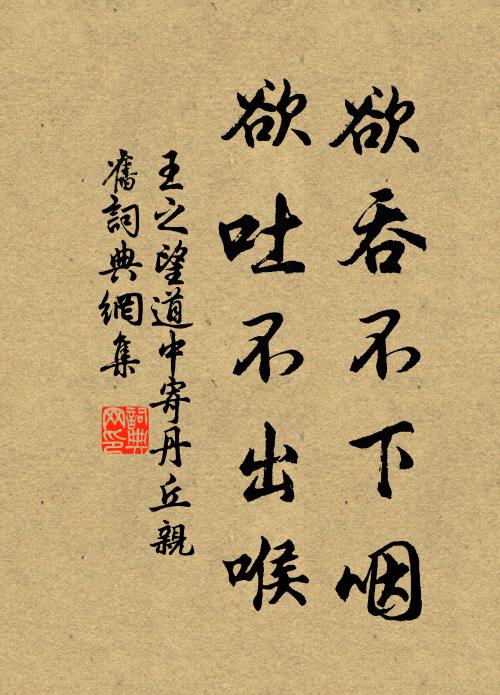 欲吞不下咽
欲吐不出喉
王之望道中寄丹丘親
舊詞典網集
詞典
网印